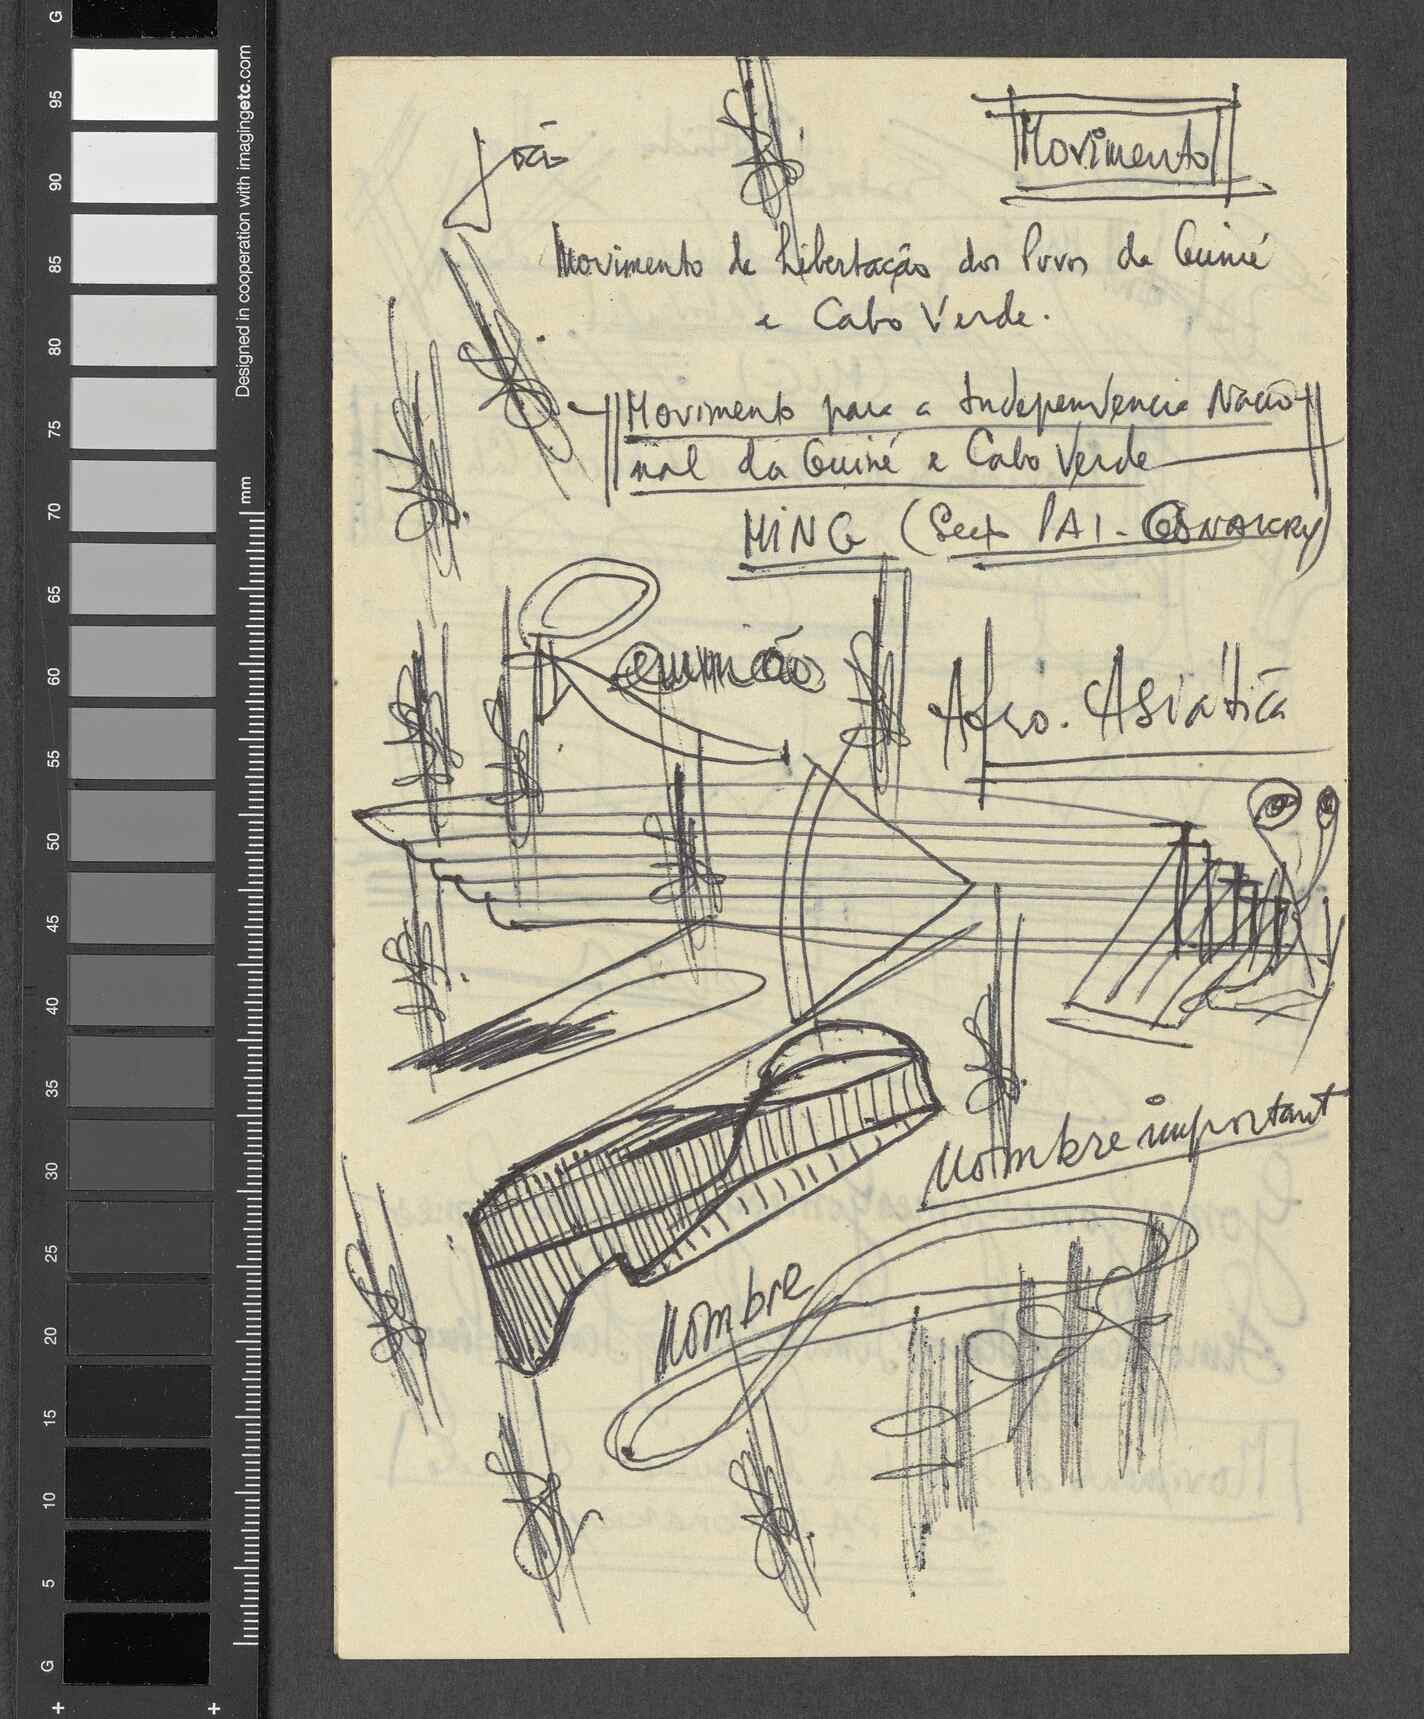 João
Movimento
Movimento de Libertação dos Povos da Guiné
e Cabo Verde.
Movimento para a Independência Nacio-
nal da Guiné e Cabo Verde
MING (Sect PAI - CONAKRY)
Reunião
Afro. Asiática
Nombre important
Nombre
Designed in cooperation with imagingetc.com
mm
G
95
90
85
80
75
70
65
60
55
50
45
40
35
30
25
20
15
10
5
G